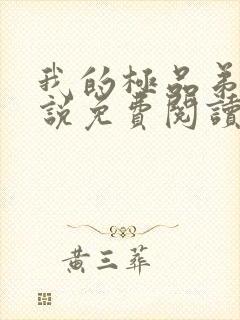 我的極品弟
説免費閱讀
黃三葬